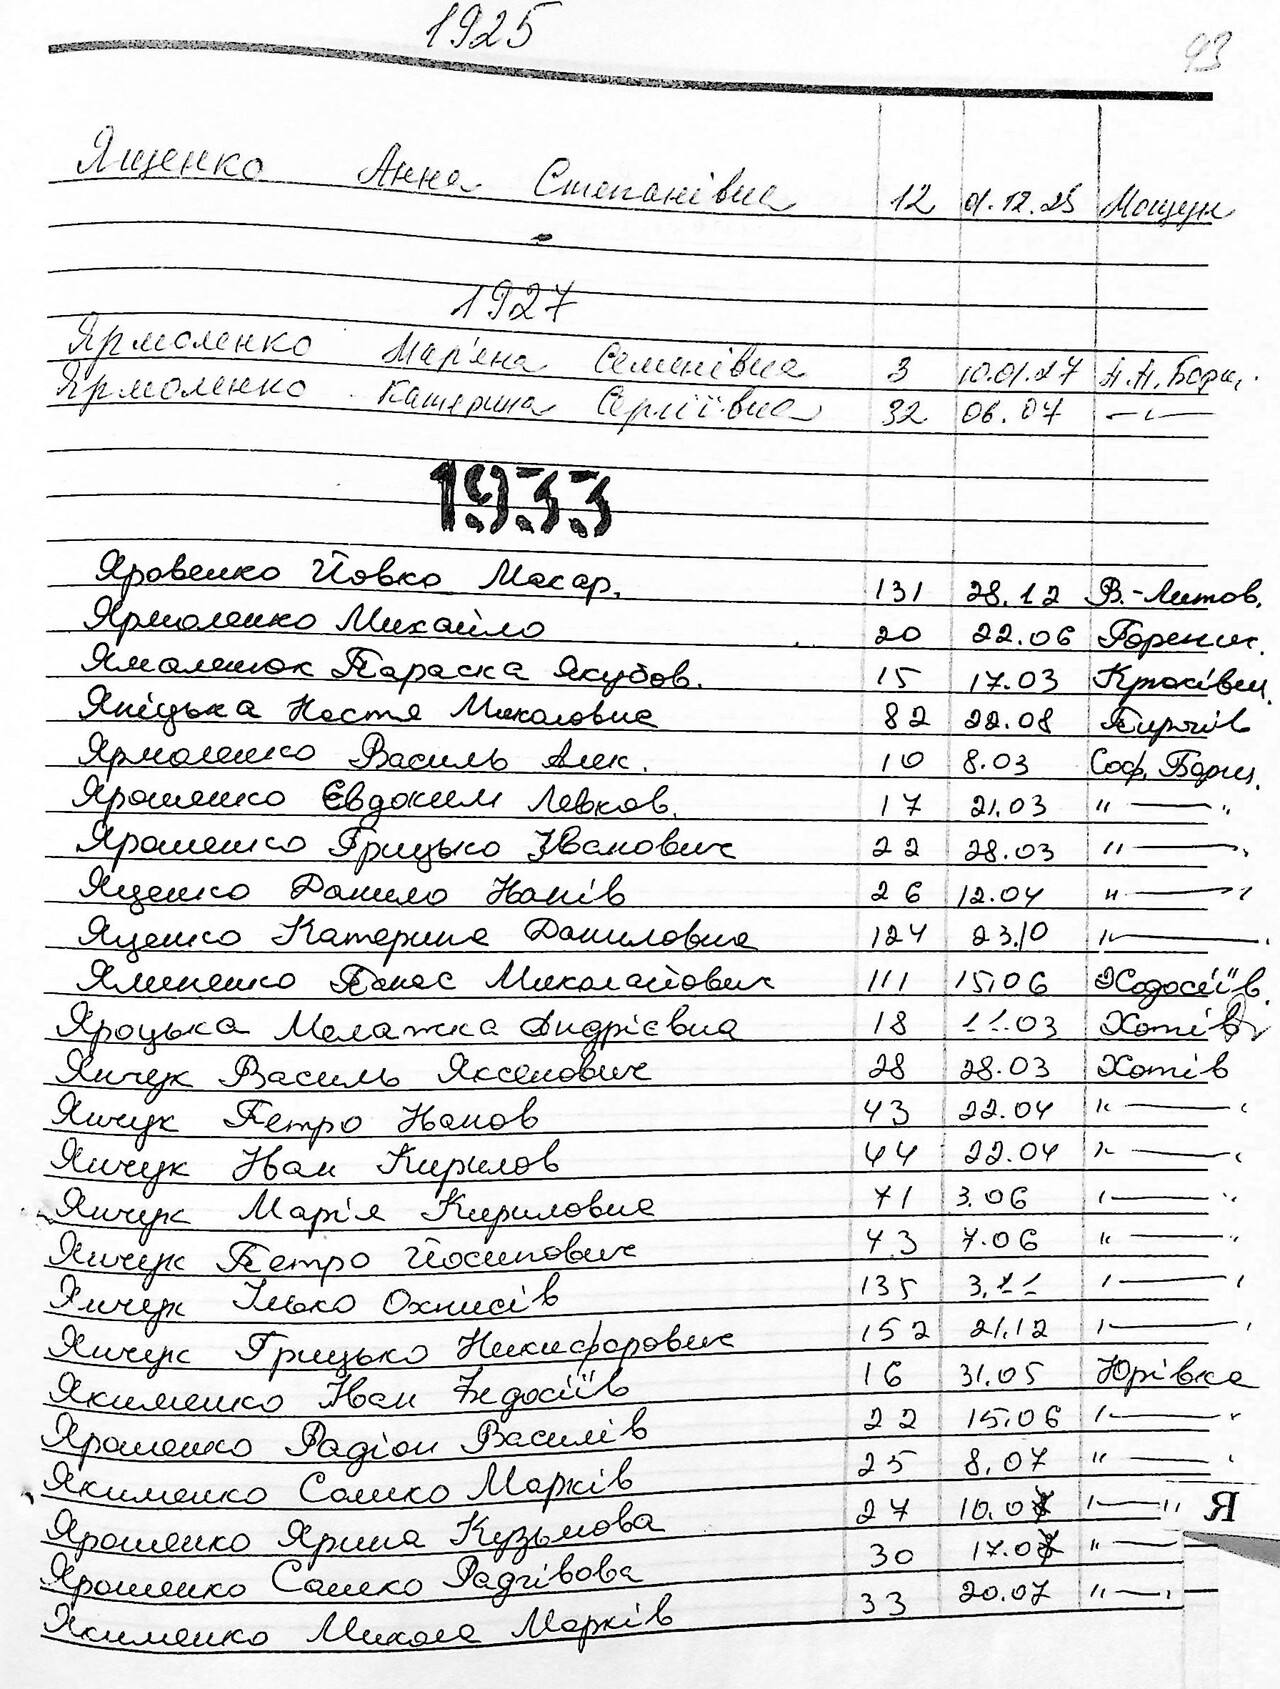 1925
93
Ященко Анна Степанівна 12 01.12.25 Мощун
1927
Ярмоленко Мар'яна Семенівна 3 10.01.27 П.П. Борщ.
Ярмоленко Катерина Сергіївна 32 06.07 —"—
1933
Яровенко Йовхо Макар. 131 28.12 В.-Литов.
Ярмоленко Михайло 20 22.06 Горенич.
Ямалетюк Параска Якубов. 15 17.03 Крюківщ.
Яніцька Настя Миколовна 82 22.08 Пирчів
Ярмоленко Василь Алек. 10 8.03 Соф. Борщ.
Ярошенко Євдоким Левков. 17 21.03 "—"
Ярошенко Грицько Іванович 22 28.03 "—"
Яценко Данило Нанів 26 12.04 "—"
Яценко Катерина Даниловна 124 23.10 "—"
Ялиненко Панас Миколайович 111 15.06 Ходосіїв
Яроцька Мелашка Андрієвна 18 11.03 Хотів
Янчук Василь Яксенович 28 28.03 Хотів
Янчук Петро Іванов 43 22.04 "—"
Янчук Іван Кирилов 44 22.04 "—"
Янчук Марія Кириловна 71 3.06 "—"
Янчук Петро Йосипович 43 7.06 "—"
Янчук Ілько Охнисів 135 3.11 "—"
Янчук Грицько Никифорович 152 21.12 "—"
Якименко Іван Федосіїв 16 31.05 Юрівка
Ярошенко Радіон Василів 22 15.06 "—"
Якименко Сашко Марків 25 8.07 "—"
Ярошенко Ярина Кузьмова 27 10.07 "—"
Я
Ярошенко Сашко Радівова 30 17.07 "—"
Якименко Микола Марків 33 20.07 "—"